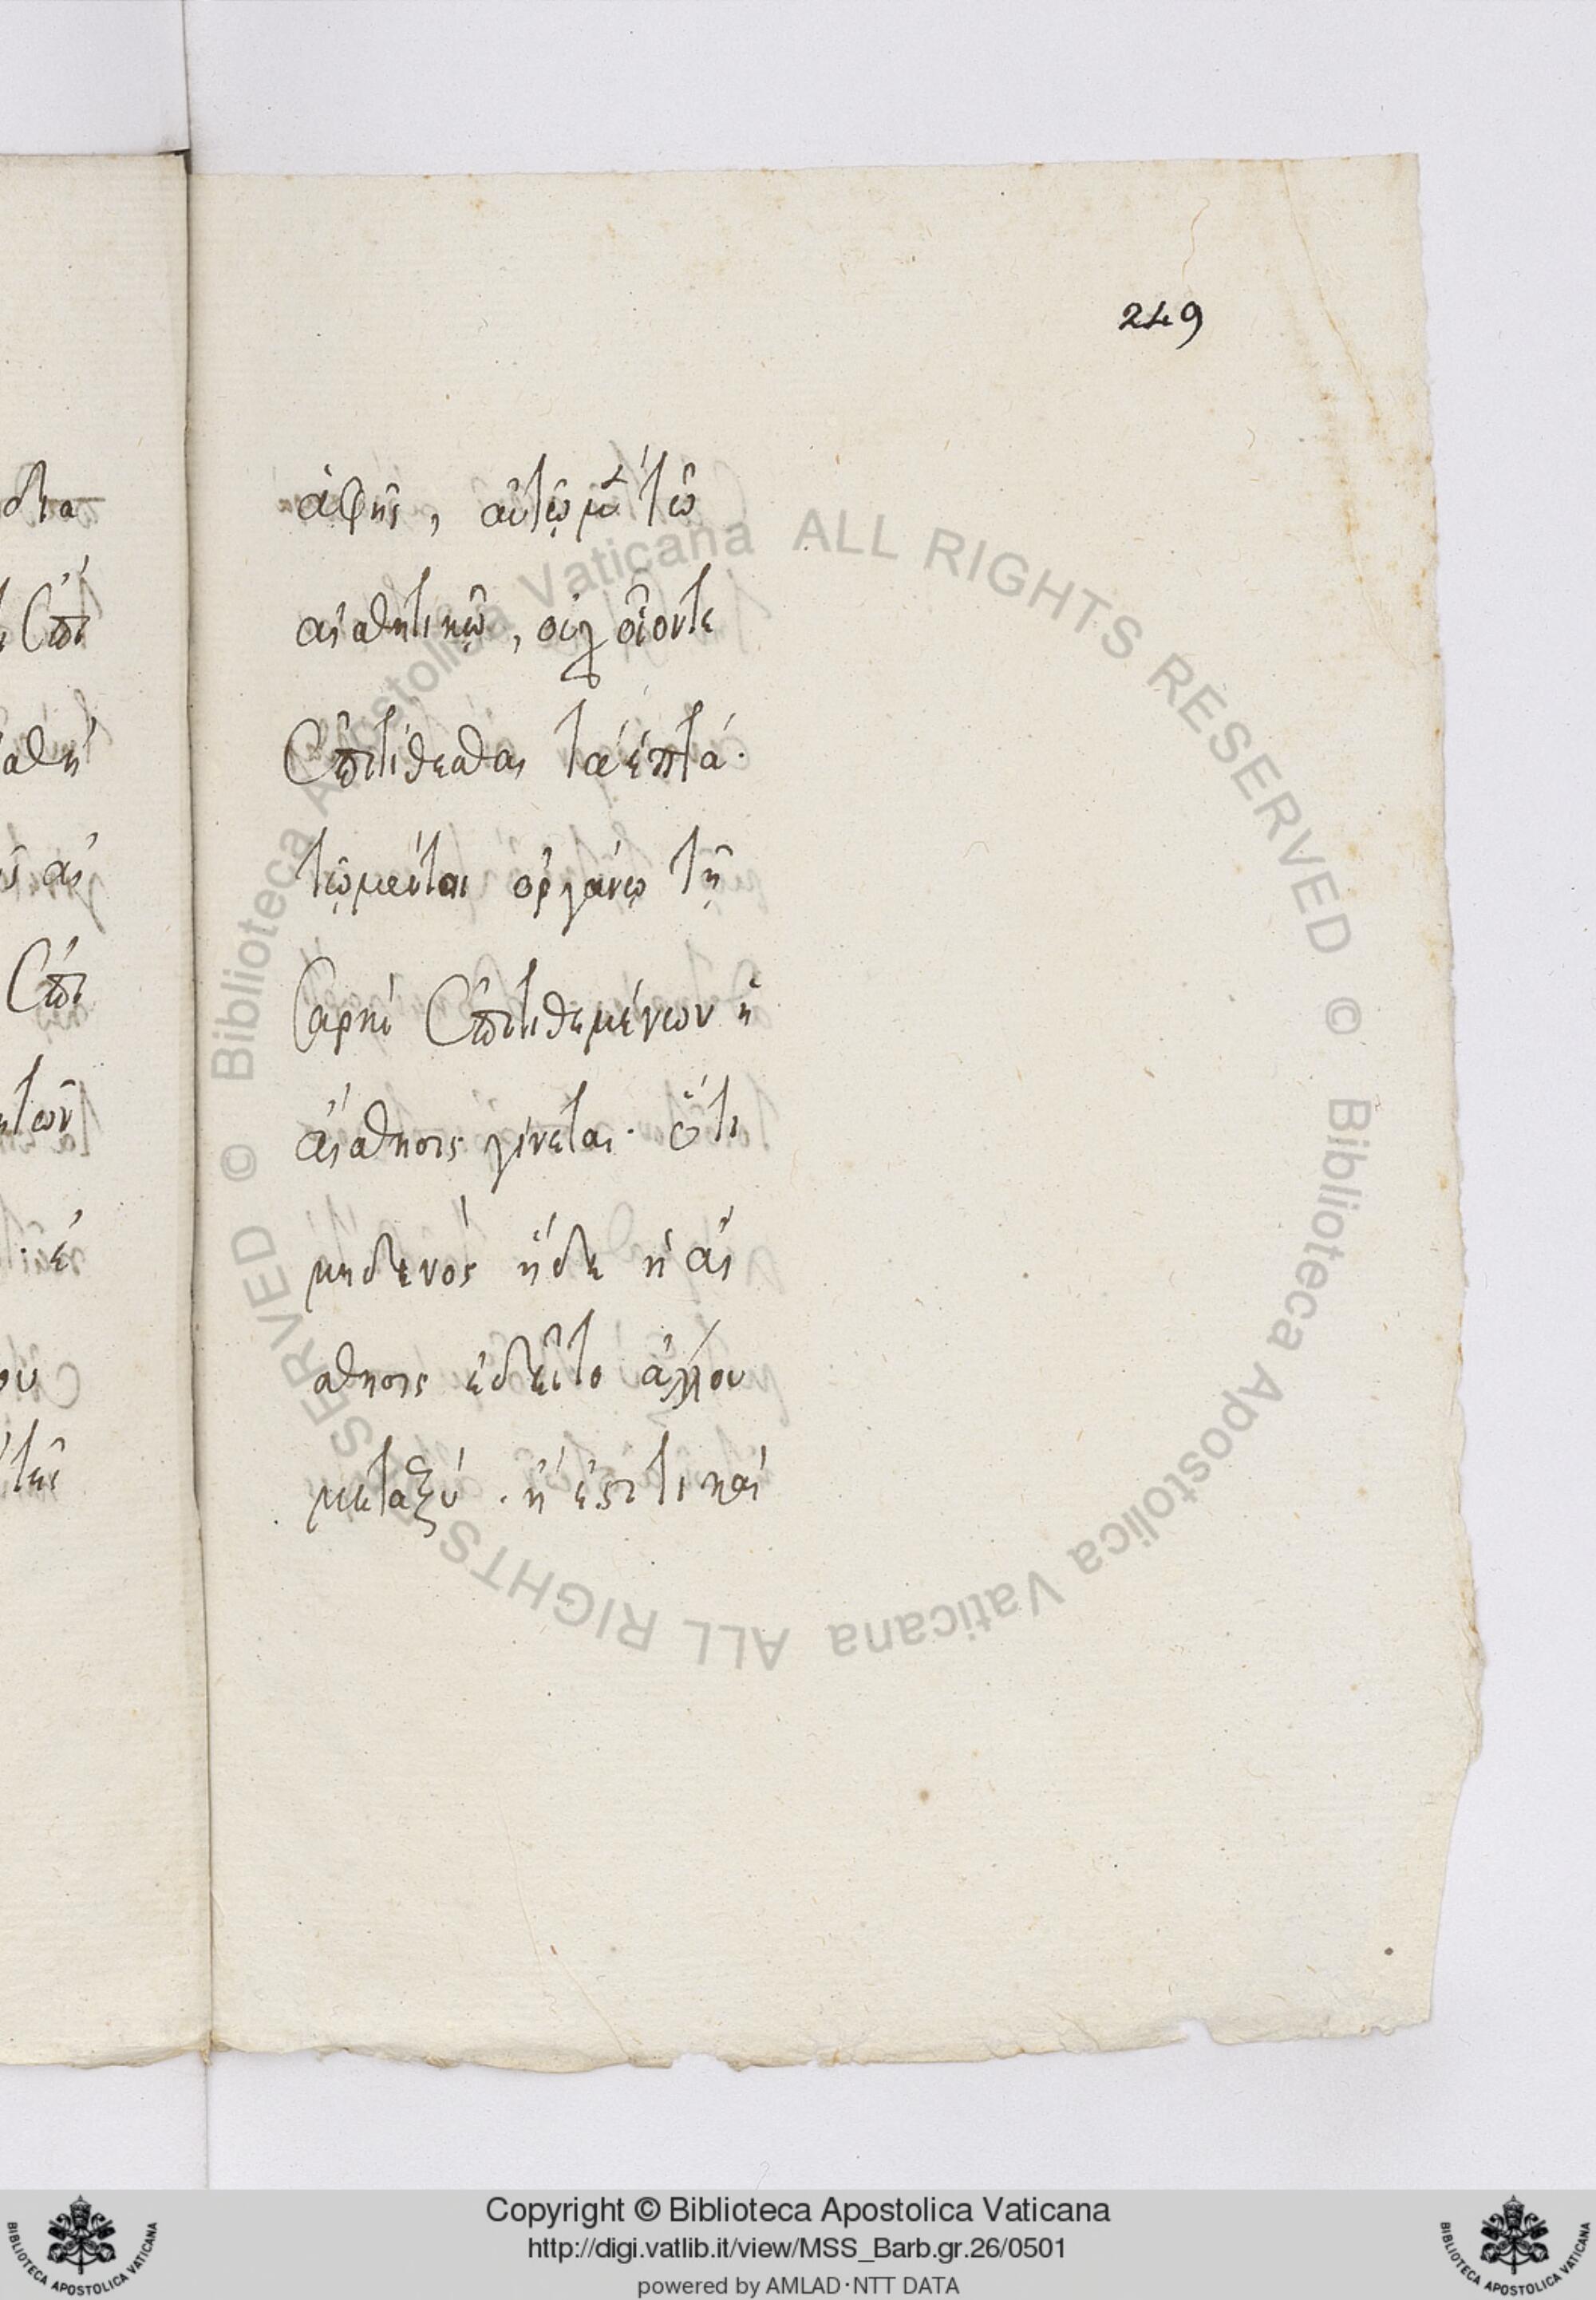 249
ἁφῆς, αὐτῷ μὲν τῷ
αἰσθητικῷ, οὐχ οἷόντε
ἐπιτίθεσθαι τὰ ἁπτά·
τῷ μέντοι ὀργάνῳ τῇ
σαρκὶ ἐπιτιθεμένων ἡ
αἴσθησις γίνεται· ὅτι
μηδενὸς ἥδε ἡ αἴ
σθησις ἐδεῖτο ἄλλου
μεταξύ. ἢ ἔστι καὶ
δια
ἐπι
σθητ
αἰ
ἐπι
των
ἐ
ου
της
© Biblioteca Apostolica Vaticana ALL RIGHTS RESERVED © Biblioteca Apostolica Vaticana ALL RIGHTS RESERVED
Copyright © Biblioteca Apostolica Vaticana
http://digi.vatlib.it/view/MSS_Barb.gr.26/0501
powered by AMLAD·NTT DATA
BIBLIOTECA APOSTOLICA VATICANA
BIBLIOTECA APOSTOLICA VATICANA